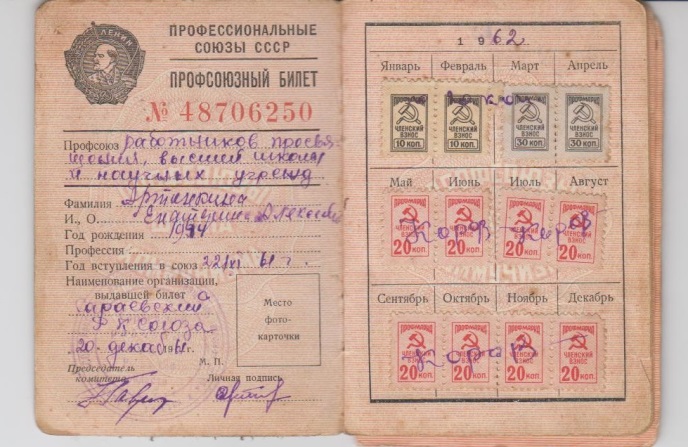 ЛЕНИН
ПРОФЕССИОНАЛЬНЫЕ
СОЮЗЫ СССР
ПРОФСОЮЗНЫЙ БИЛЕТ
№ 48706250
Профсоюз работников просве-
щения, высшей школы
и научных учрежд
Фамилия
И., О. Екатерина Алексеевна
Год рождения 1944
Профессия
Год вступления в союз 22/XI 61 г.
Наименование организации,
выдавшей билет
Союза
20 декаб 1961 г.
М. П.
Председатель
комитета
Личная подпись
Место
фото-
карточки
1962
Январь Февраль Март Апрель
ПРОФМАРКА ПРОФМАРКА ПРОФМАРКА ПРОФМАРКА
ЧЛЕНСКИЙ ЧЛЕНСКИЙ ЧЛЕНСКИЙ ЧЛЕНСКИЙ
ВЗНОС ВЗНОС ВЗНОС ВЗНОС
10 КОП. 10 КОП. 30 КОП. 30 КОП.
Май Июнь Июль Август
ПРОФМАРКА ПРОФМАРКА ПРОФМАРКА ПРОФМАРКА
ЧЛЕНСКИЙ ЧЛЕНСКИЙ ЧЛЕНСКИЙ ЧЛЕНСКИЙ
ВЗНОС ВЗНОС ВЗНОС ВЗНОС
20 КОП. 20 КОП. 20 КОП. 20 КОП.
Сентябрь Октябрь Ноябрь Декабрь
ПРОФМАРКА ПРОФМАРКА ПРОФМАРКА ПРОФМАРКА
ЧЛЕНСКИЙ ЧЛЕНСКИЙ ЧЛЕНСКИЙ ЧЛЕНСКИЙ
ВЗНОС ВЗНОС ВЗНОС ВЗНОС
20 КОП. 20 КОП. 20 КОП. 20 КОП.